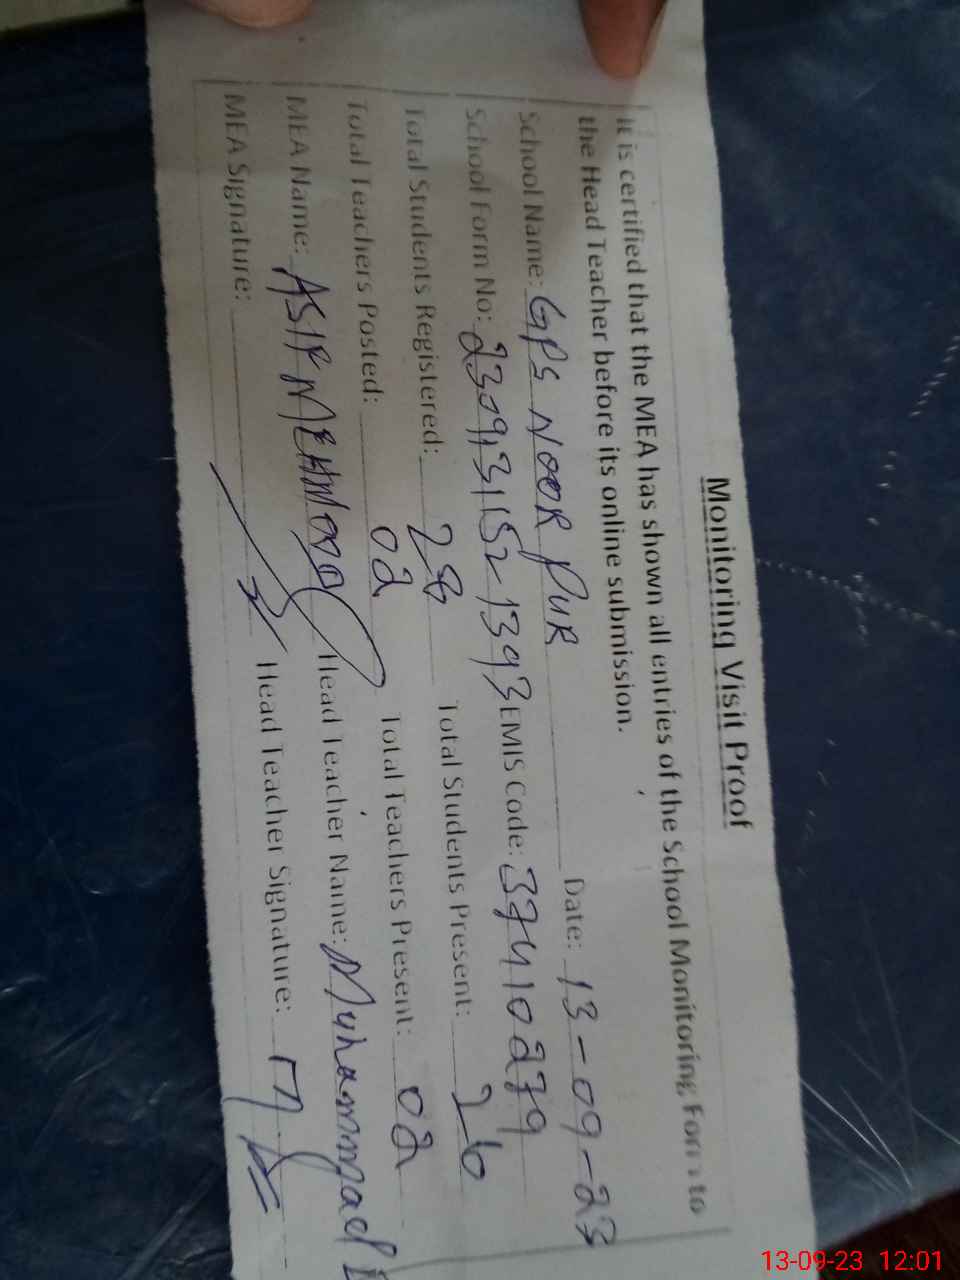 Monitoring Visit Proof
It is certified that the MEA has shown all entries of the School Monitoring Form to
the Head Teacher before its online submission.
School Name: GPS NOOR PUR Date: 13-09-23
School Form No: 23091311521393 EMIS Code: 37410279
Total Students Registered: 28 Total Students Present: 26
Total Teachers Posted: 02 Total Teachers Present: 02
MEA Name: ASIF MEHMOOD Head Teacher Name: Muhammad
MEA Signature: Head Teacher Signature:
13-09-23 12:01